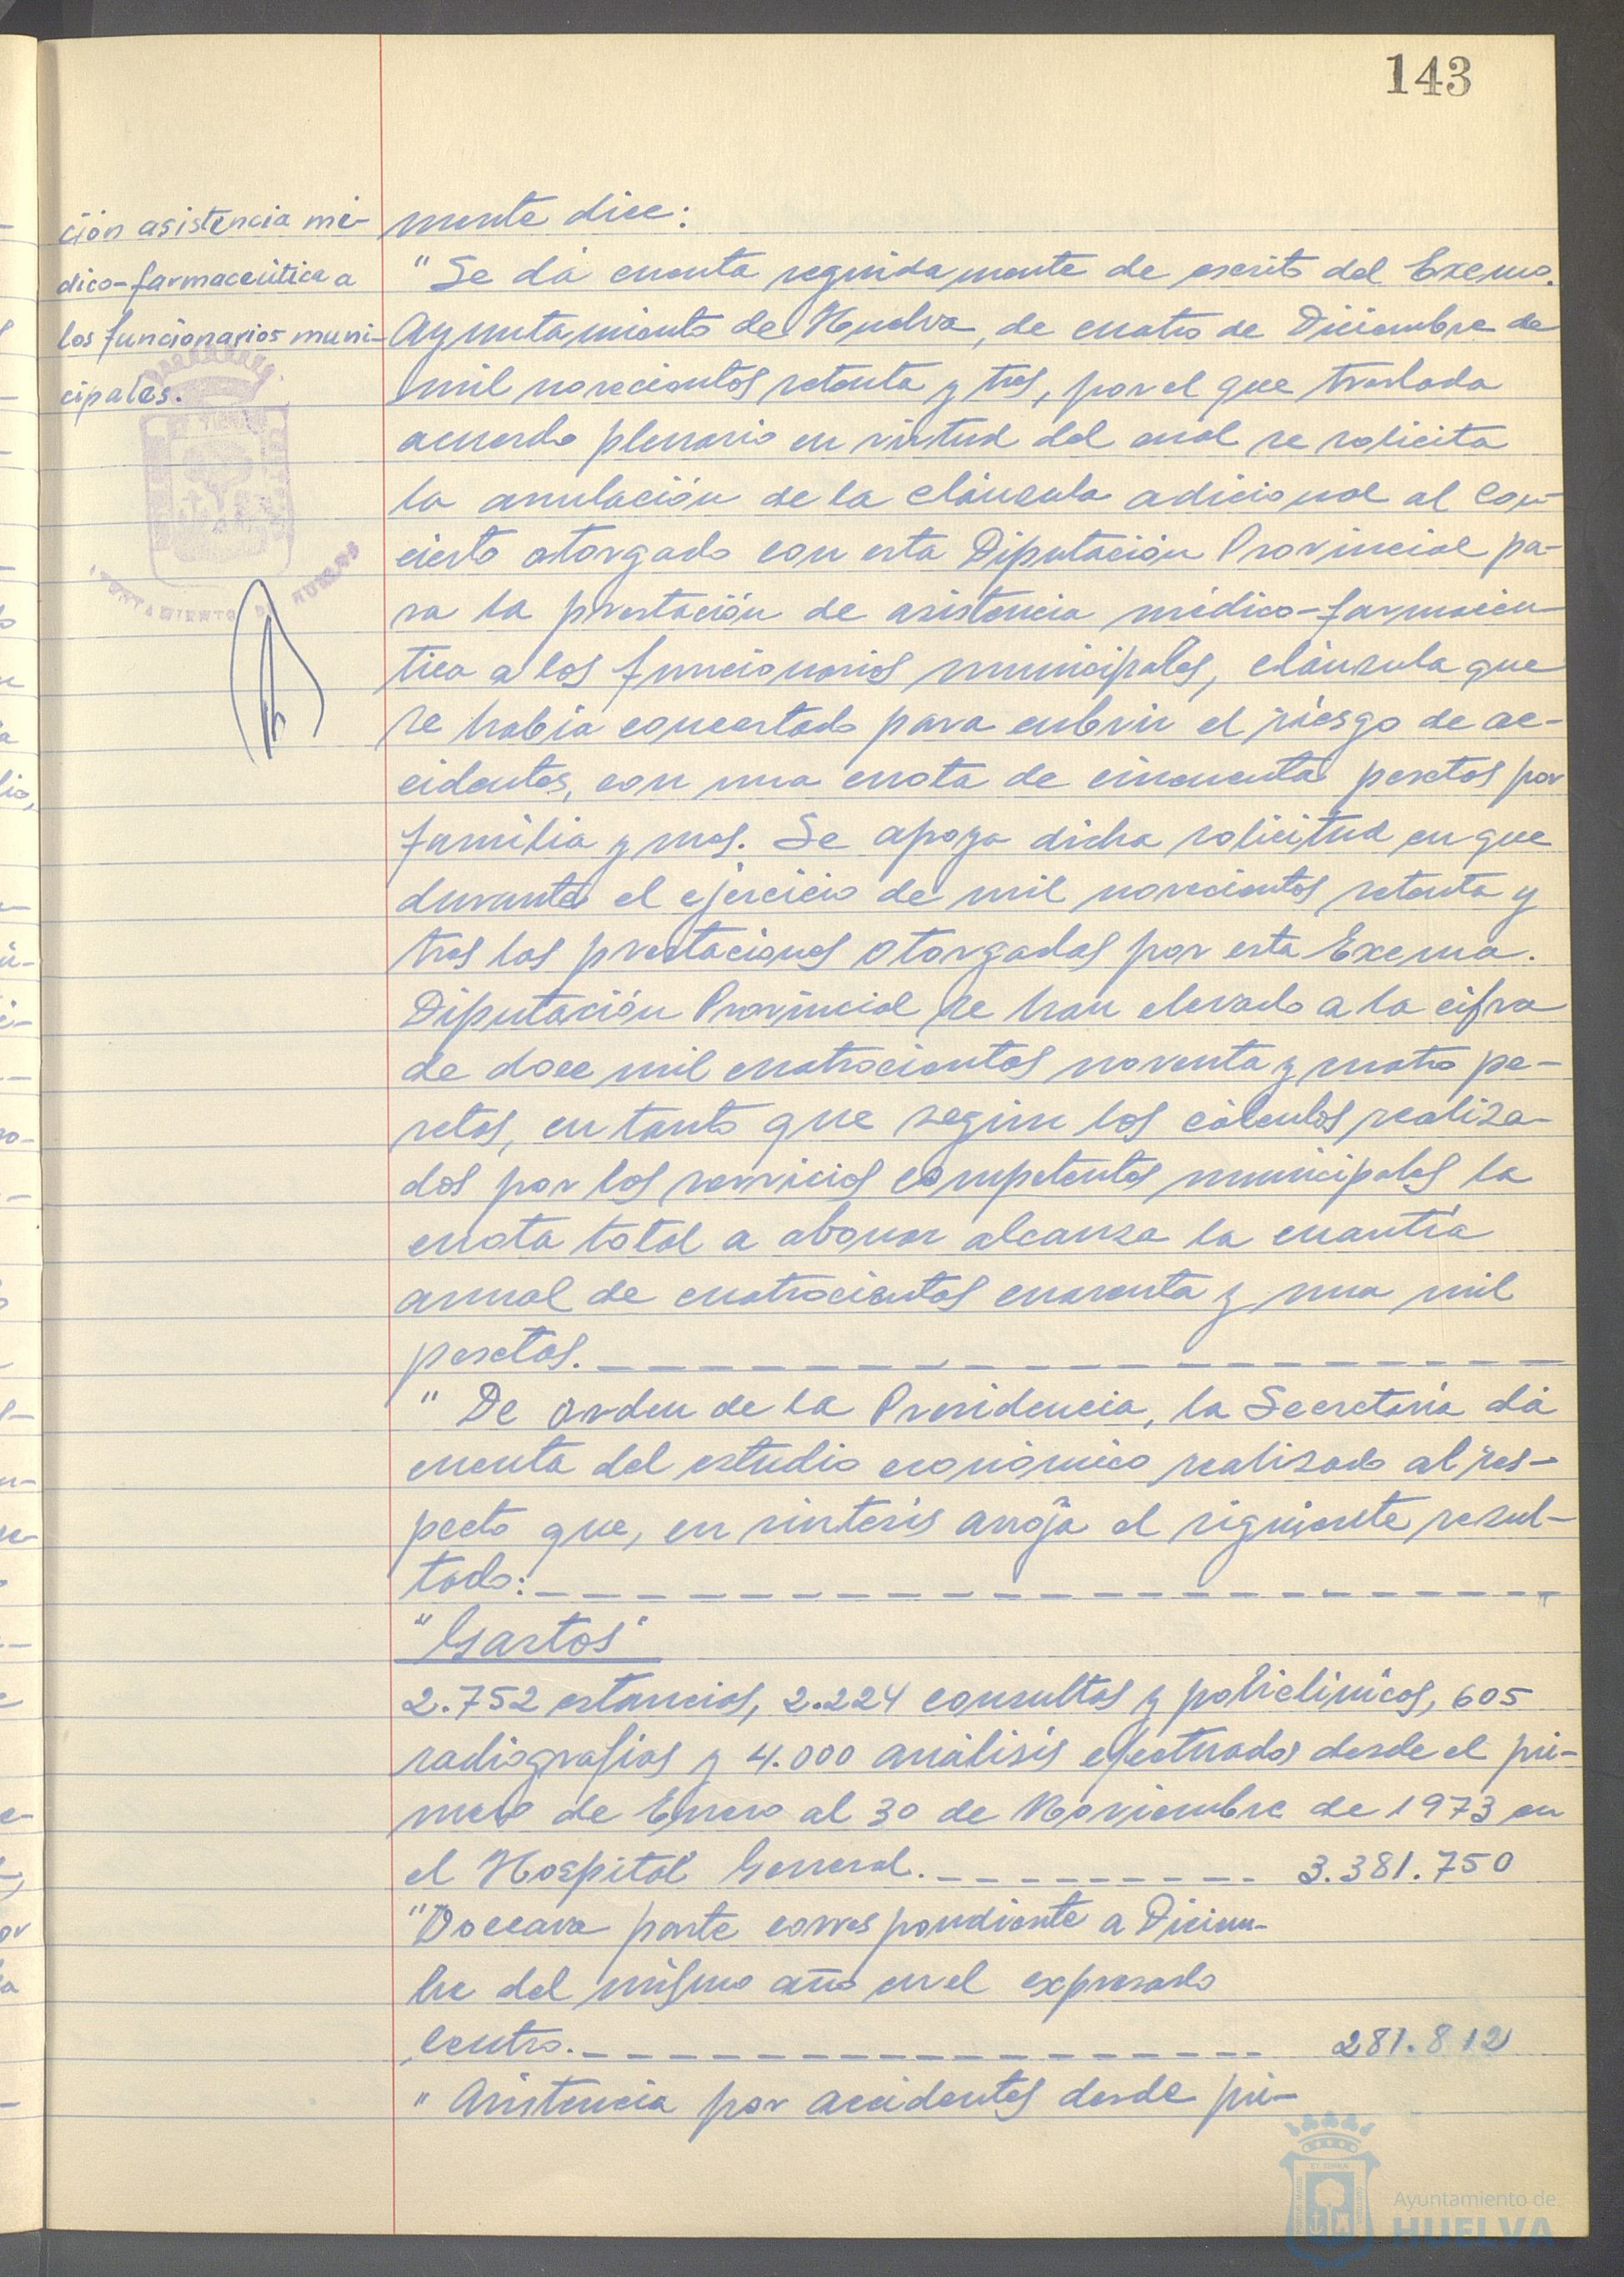 143
ción asistencia mé-
dico-farmaceútica a
los funcionarios muni-
cipales.
AYUNTAMIENTO DE HUELVA
mente dice:
"Se dá cuenta seguidamente de escrito del Excmo.
Ayuntamiento de Huelva, de cuatro de Diciembre de
mil novecientos setenta y tres, por el que traslada
acuerdo plenario en virtud del cual se solicita
la anulación de la cláusula adicional al Con-
cierto otorgado con esta Diputación Provincial pa-
ra la prestación de asistencia médico-farmaceu-
tica a los funcionarios municipales, cláusula que
se había concertado para cubrir el riesgo de ac-
cidentes, con una cuota de cincuenta pesetas por
familia y mes. Se apoya dicha solicitud en que
durante el ejercicio de mil novecientos setenta y
tres las prestaciones otorgadas por esta Excma.
Diputación Provincial se han elevado a la cifra
de doce mil cuatrocientas noventa y cuatro pe-
setas, en tanto que según los cálculos realiza-
dos por los servicios competentes municipales la
cuota total a abonar alcanza la cuantía
anual de cuatrocientas cuarenta y una mil
pesetas.
"De orden de la Presidencia, la Secretaría dá
cuenta del estudio económico realizado al res-
pecto que, en síntesis arroja el siguiente resul-
tado:
"Gastos"
2.752 estancias, 2.224 consultas y policlínicas, 605
radiografías y 4.000 análisis efectuados desde el pri-
mero de Enero al 30 de Noviembre de 1973 en
el Hospital General. 3.381.750
"Doceava parte correspondiente a Diciem-
bre del mismo año en el expresado
Centro. 281.812
"Asistencia por accidentes desde pri-
Ayuntamiento de
HUELVA